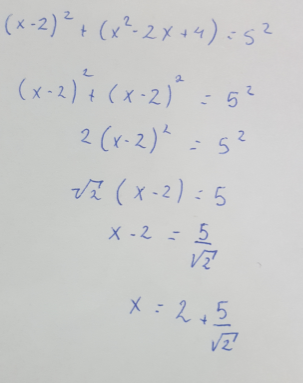 (x-2)² + (x²-2x+4) = 5²
(x-2)² + (x-2)² = 5²
2(x-2)² = 5²
√2 (x-2) = 5
x-2 = 5/√2
x = 2 + 5/√2